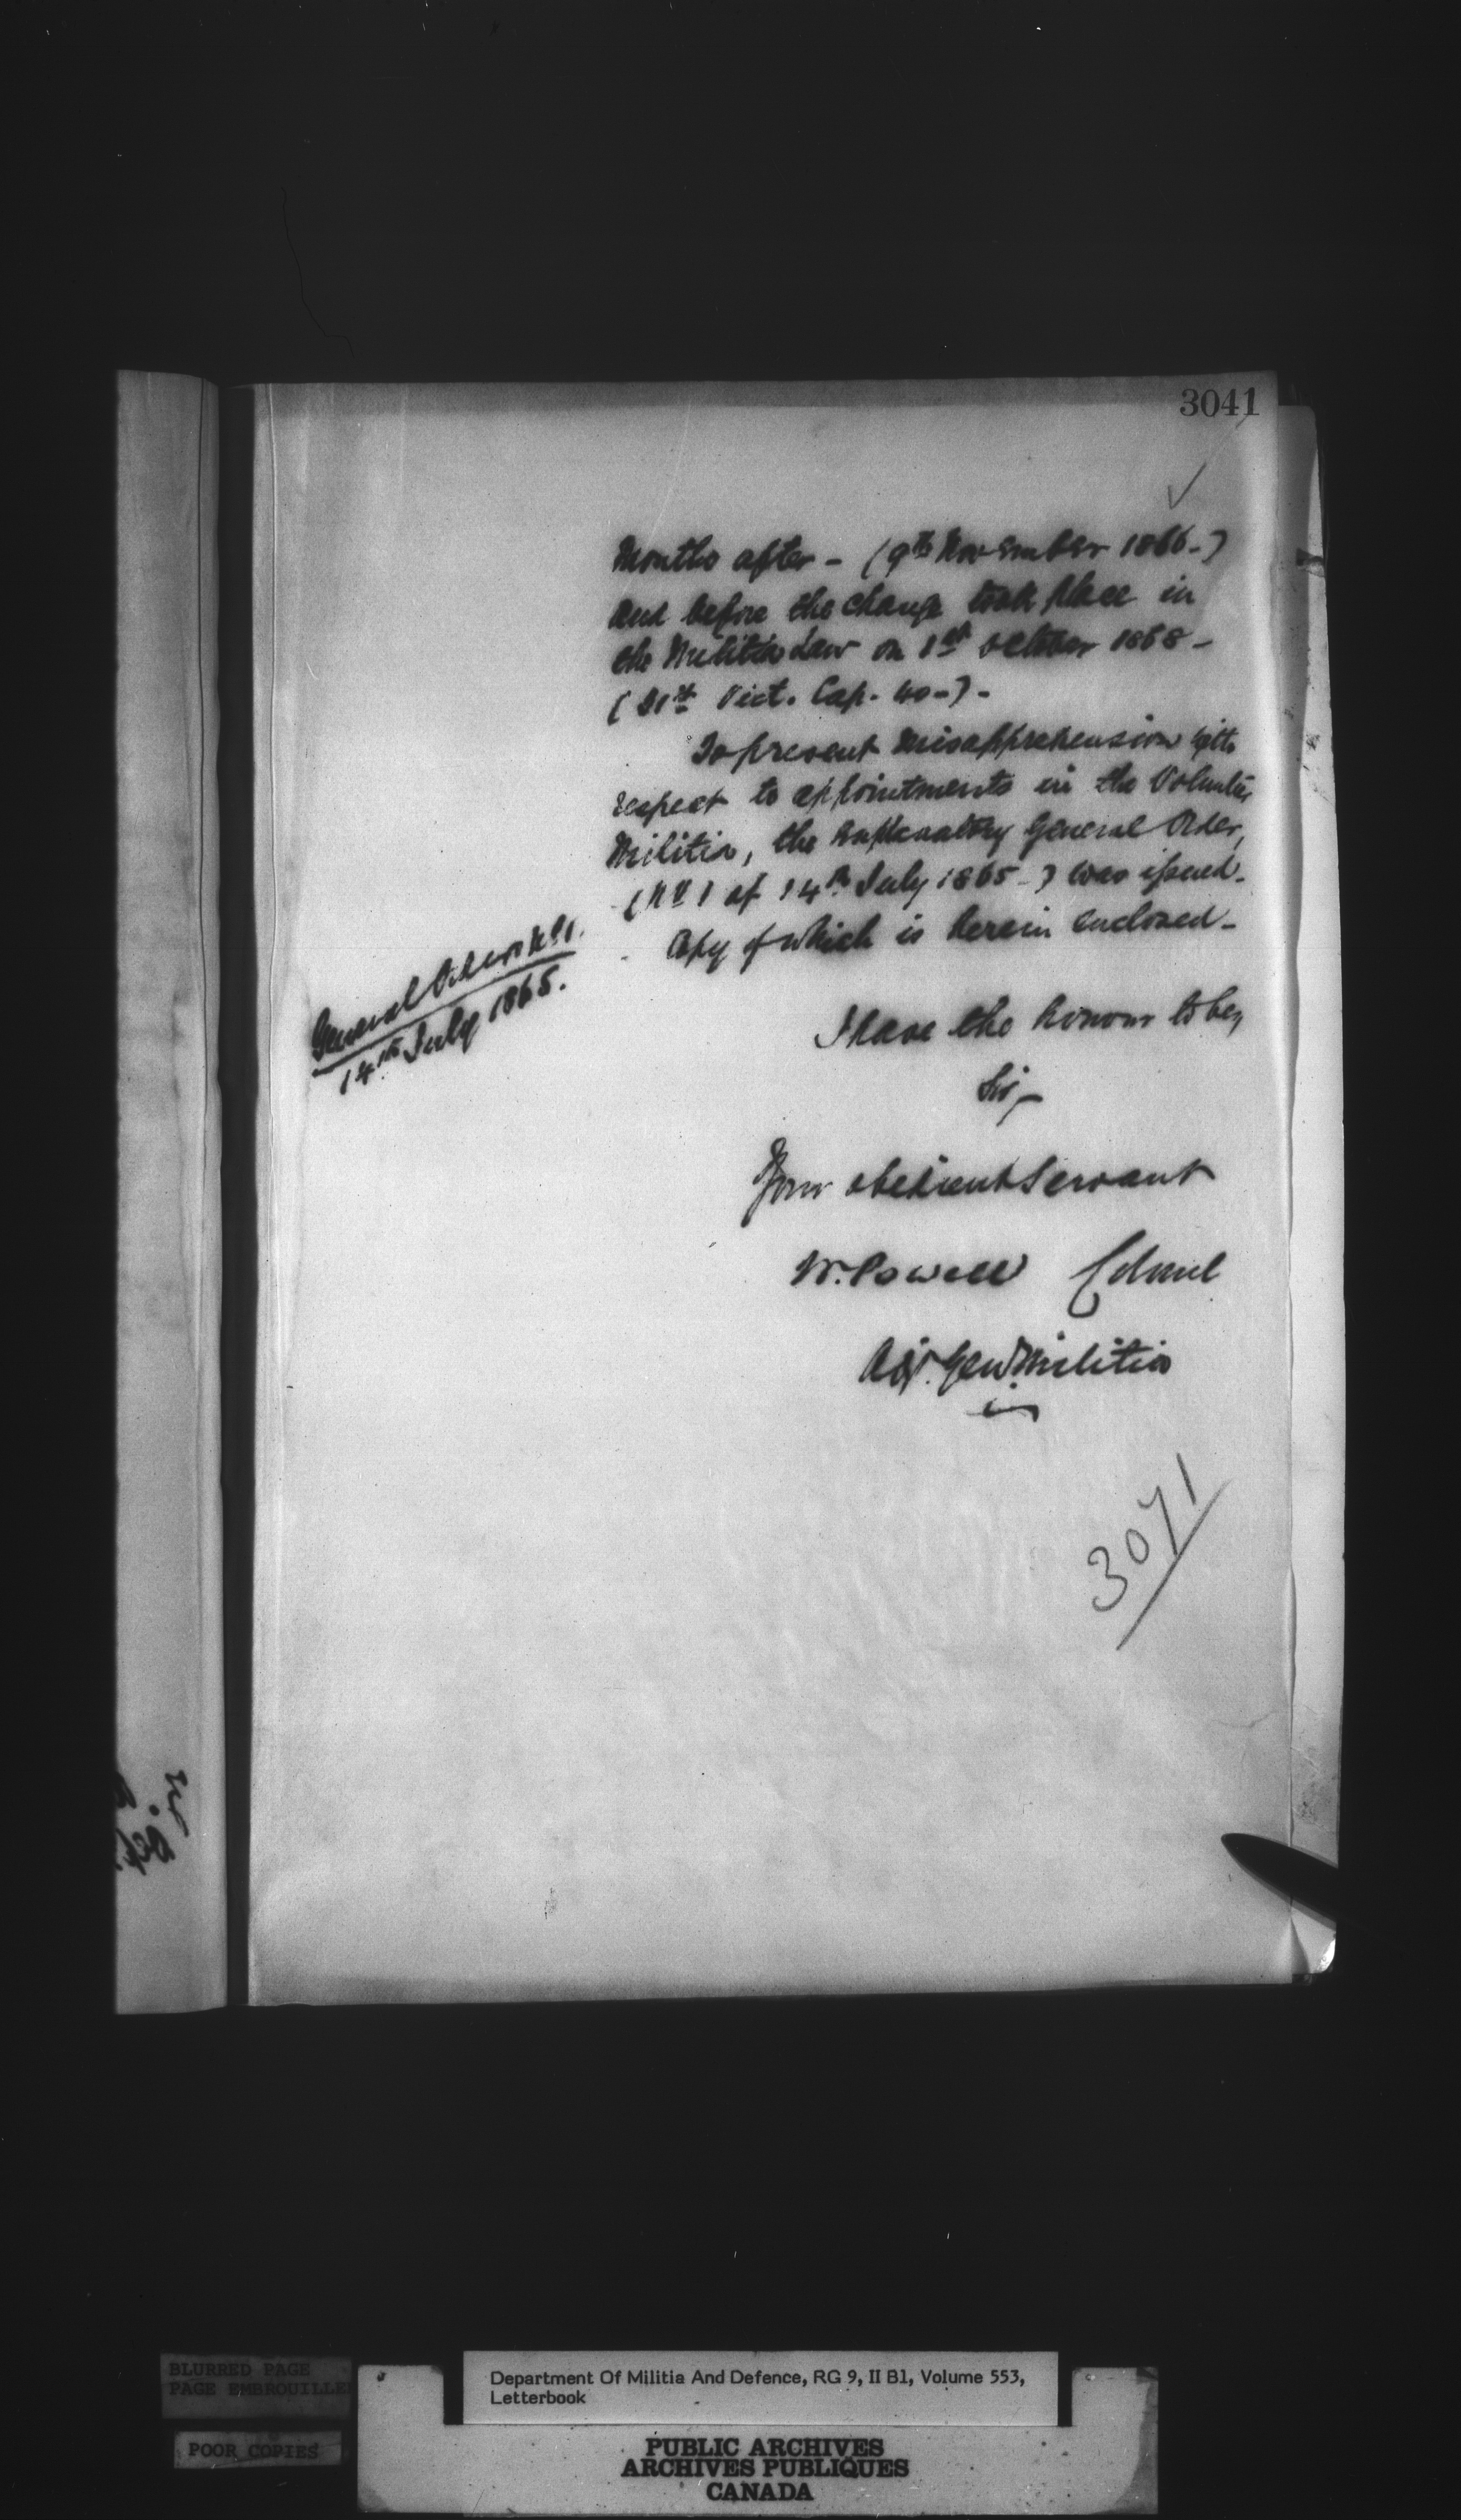 3041
Months after - (9th November 1866-)
and before the change took place in
the Militia Law on 1st October 1868-
(31st Vict. Cap. 40-)-
To prevent misapprehension with
respect to appointments in the Volunteer
Militia, the explanatory General Order,
(No 1 of 14th July 1865-) was issued-
Copy of which is herein enclosed-
General Order No 1.
14th July 1865.
I have the honour to be,
Sir,
Your obedient Servant
W. Powell Colonel
Adj. Genl Militia
3071
BLURRED PAGE
PAGE EMBROUILLE
POOR COPIES
Department Of Militia And Defence, RG 9, II B1, Volume 553,
Letterbook
PUBLIC ARCHIVES
ARCHIVES PUBLIQUES
CANADA